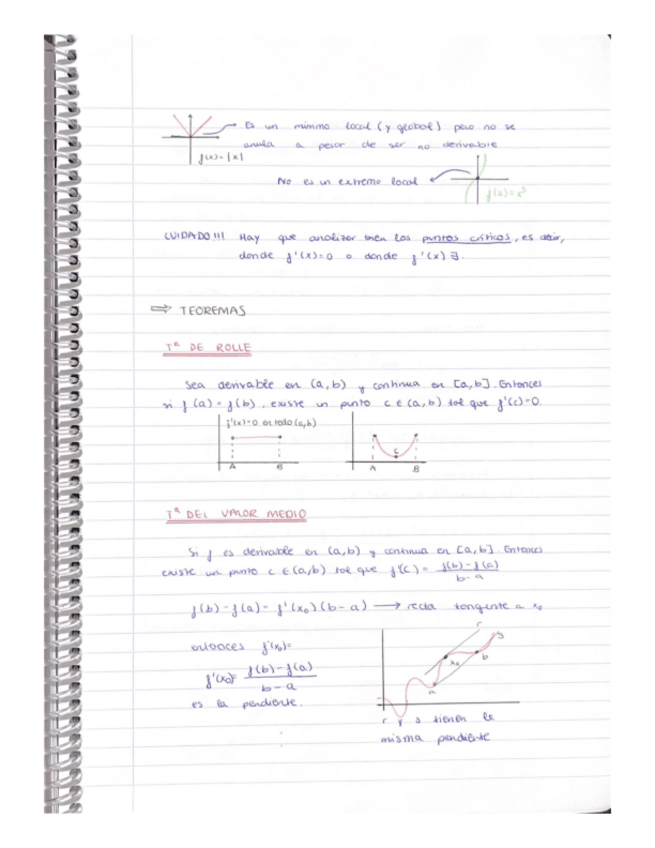 Es un mínimo local (y global) pero no se
anula a pesar de ser no derivable
f(x)=|x|
No es un extremo local
f(x)=x³
CUIDADO!!! Hay que analizar bien los puntos críticos, es decir,
donde f'(x)=0 o donde f'(x) ∄.
⇒ TEOREMAS
Tª DE ROLLE
Sea derivable en (a,b) y continua en [a,b]. Entonces
si f(a)=f(b), existe un punto c ∈ (a,b) tal que f'(c)=0.
f'(x)=0 en todo (a,b)
A B
c
A B
Tª DEL VALOR MEDIO
Si f es derivable en (a,b) y continua en [a,b]. Entonces
existe un punto c ∈ (a,b) tal que f'(c) = f(b)-f(a)
b-a
f(b)-f(a)= f'(x₀)(b-a) → recta tangente a x₀
entonces f'(x₀)=
f'(x₀)= f(b)-f(a)
b-a
es la pendiente.
r
s
x₀
b
a
r y s tienen la
misma pendiente